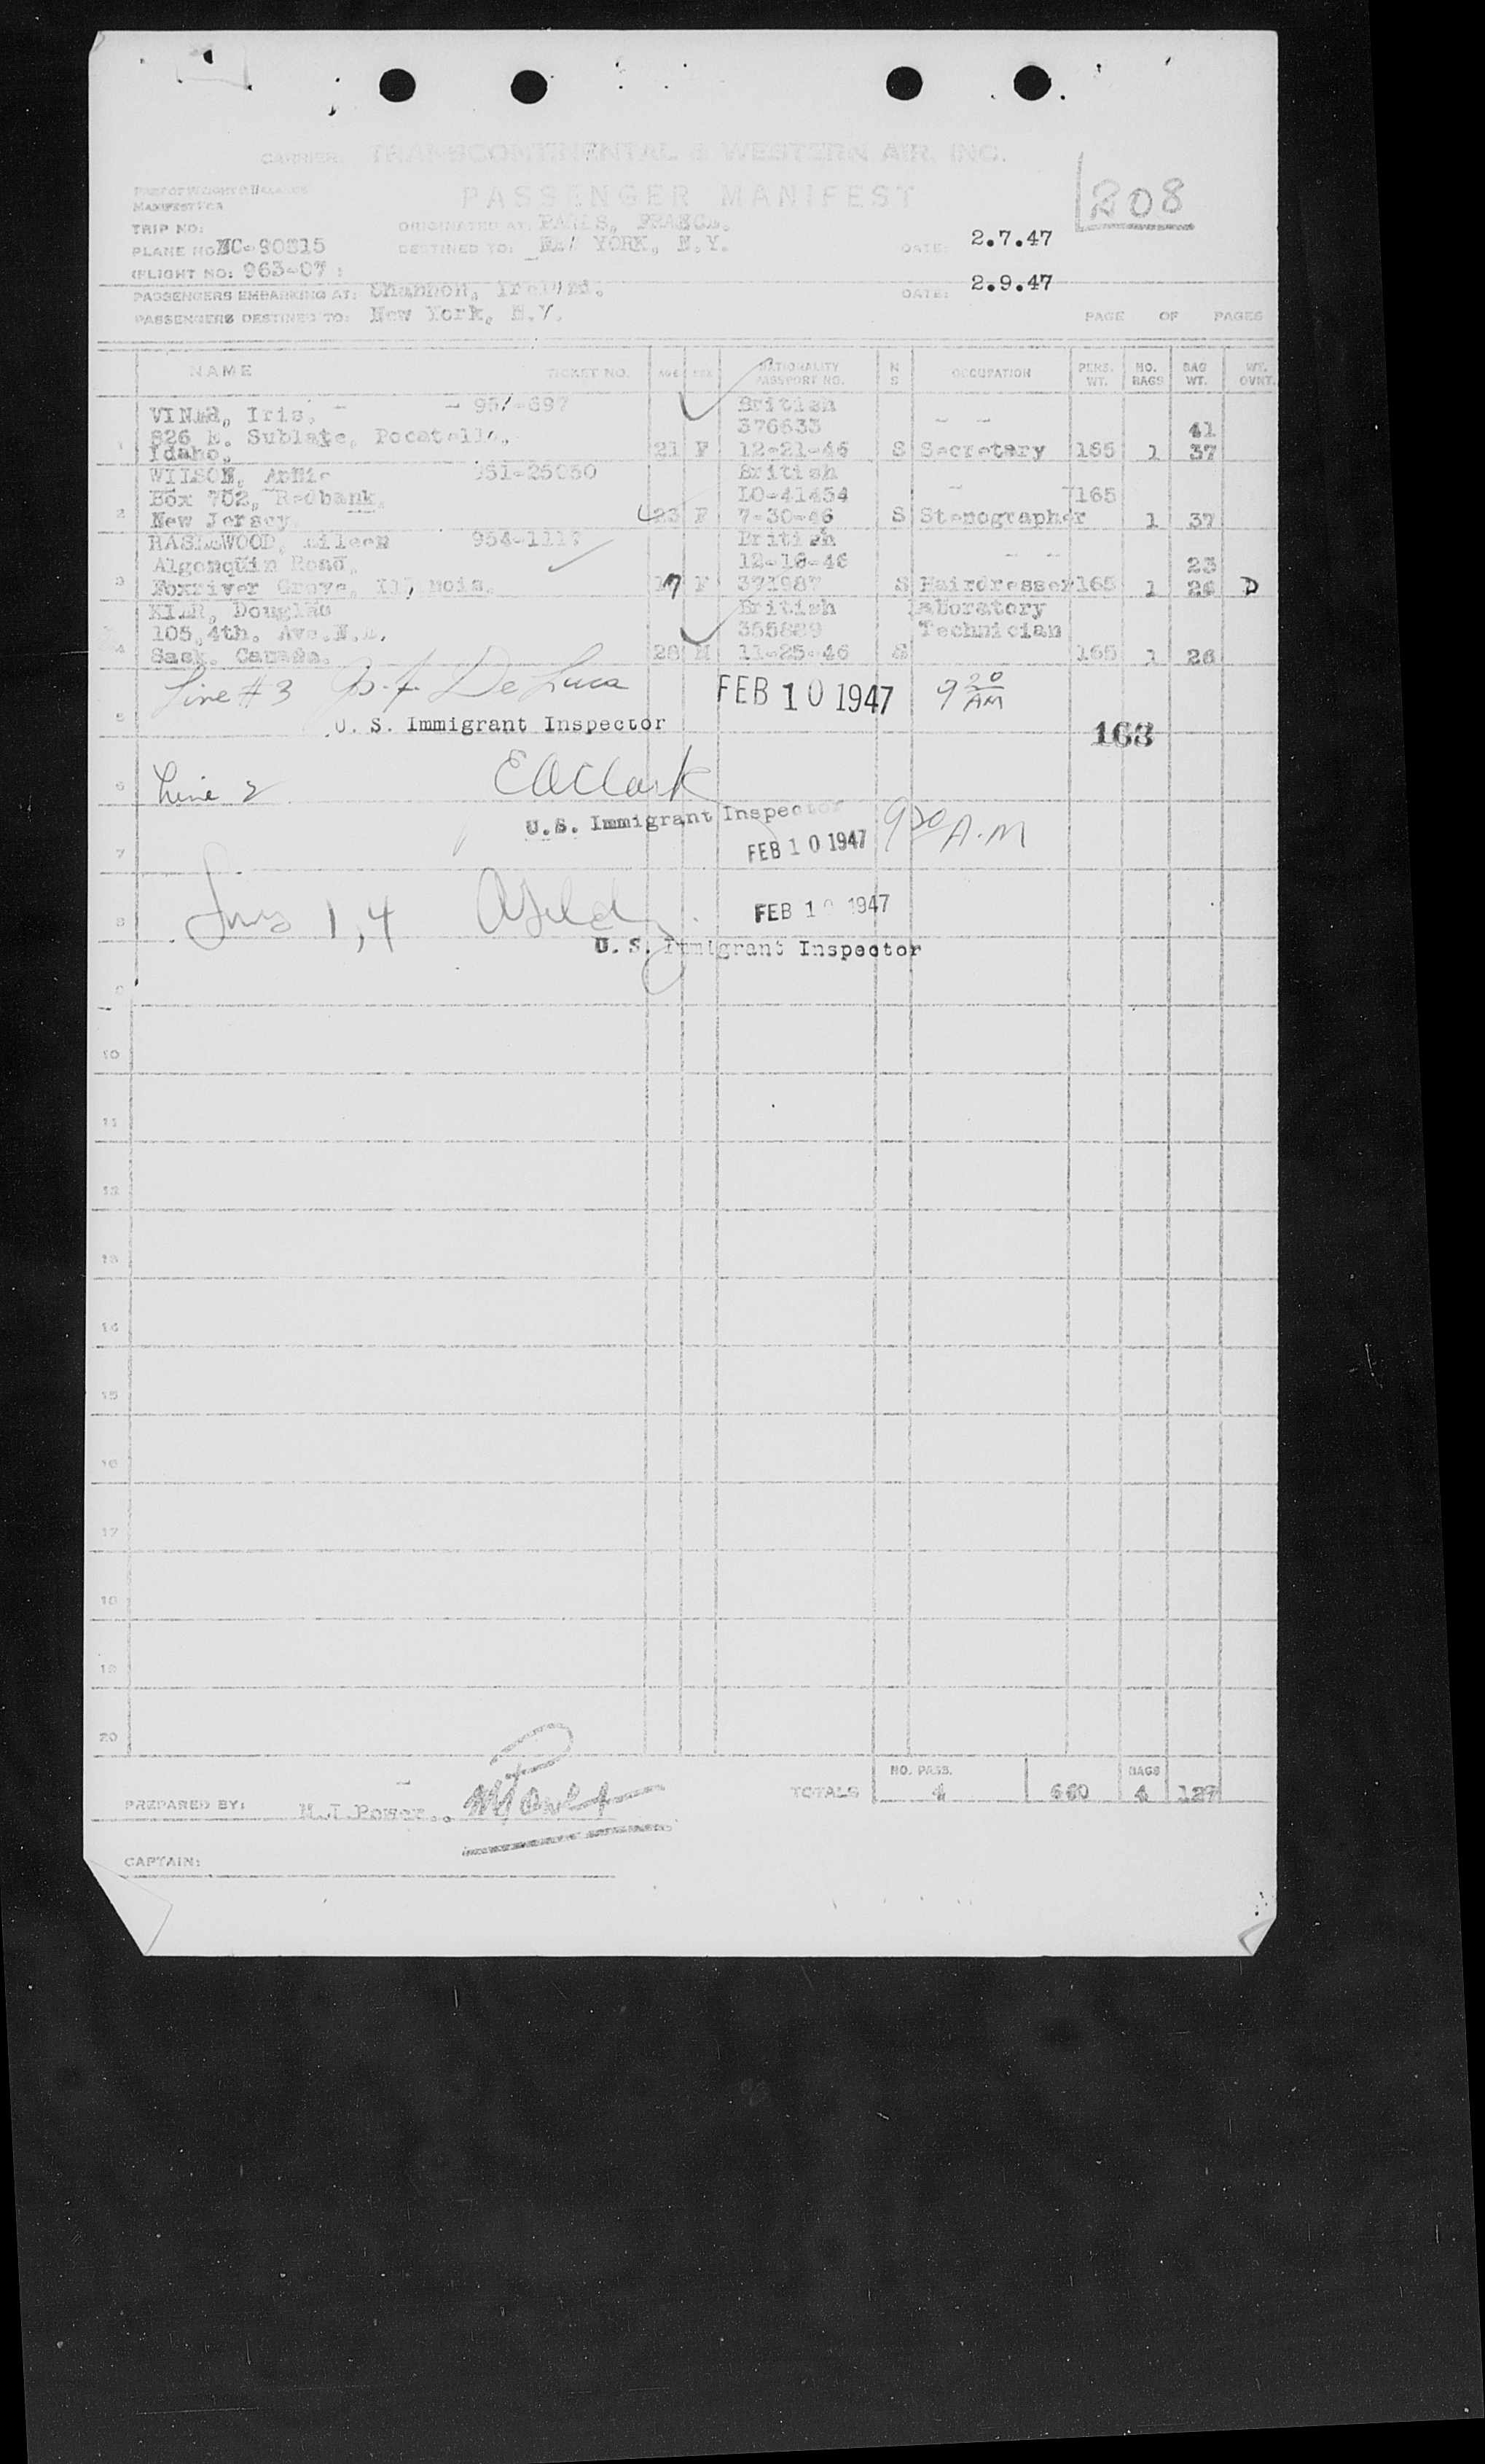 CARRIER: TRANSCONTINENTAL & WESTERN AIR, INC.
PASSENGER MANIFEST
208
PART OF WEIGHT & BALANCE
MANIFEST FOR
TRIP NO:
ORIGINATED AT: PARIS, FRANCE.
PLANE NO: NC-90815
DESTINED TO: NEW YORK, N.Y.
DATE: 2.7.47
(FLIGHT NO: 963-07)
PASSENGERS EMBARKING AT: Shannon, Ireland.
DATE: 2.9.47
PASSENGERS DESTINED TO: New York, N.Y.
PAGE OF PAGES
NAME TICKET NO. AGE SEX NATIONALITY PASSPORT NO. N S OCCUPATION PERS. WT. NO. BAGS BAG WT. WT. OVNT.
VINER, Iris. British
376633 41
826 E. Sublate, Pocatello,
1 Idaho. 21 F 12-21-46 S Secretary 165 1 37
WILSON, Annie 951-25050 British
Box 702, Redbank, LO-41454 165
2 New Jersey. 23 F 7-30-46 S Stenographer 1 37
Eileen British
Algonquin Road, 12-18-46 23
3 Foxriver Grove, Illinois. 17 F 371987 S Hairdresser 165 1 26 D
Douglas British Laboratory
105, 4th. Ave. N.E. 355889 Technician
4 Sask. Canada. 28 M 11-25-46 S 165 1 26
Line #3 De Luca FEB 10 1947 9 20 AM
5 U. S. Immigrant Inspector 163
6 Line 2 E A Clark
U.S. Immigrant Inspector 9 20 A.M
7 FEB 10 1947
8 Lines 1,4 FEB 10 1947
U. S. Immigrant Inspector
9
10
11
12
13
14
15
16
17
18
19
20
NO. PASS. BAGS
PREPARED BY: M.J. Power.. TOTALS 4 660 4 127
CAPTAIN: